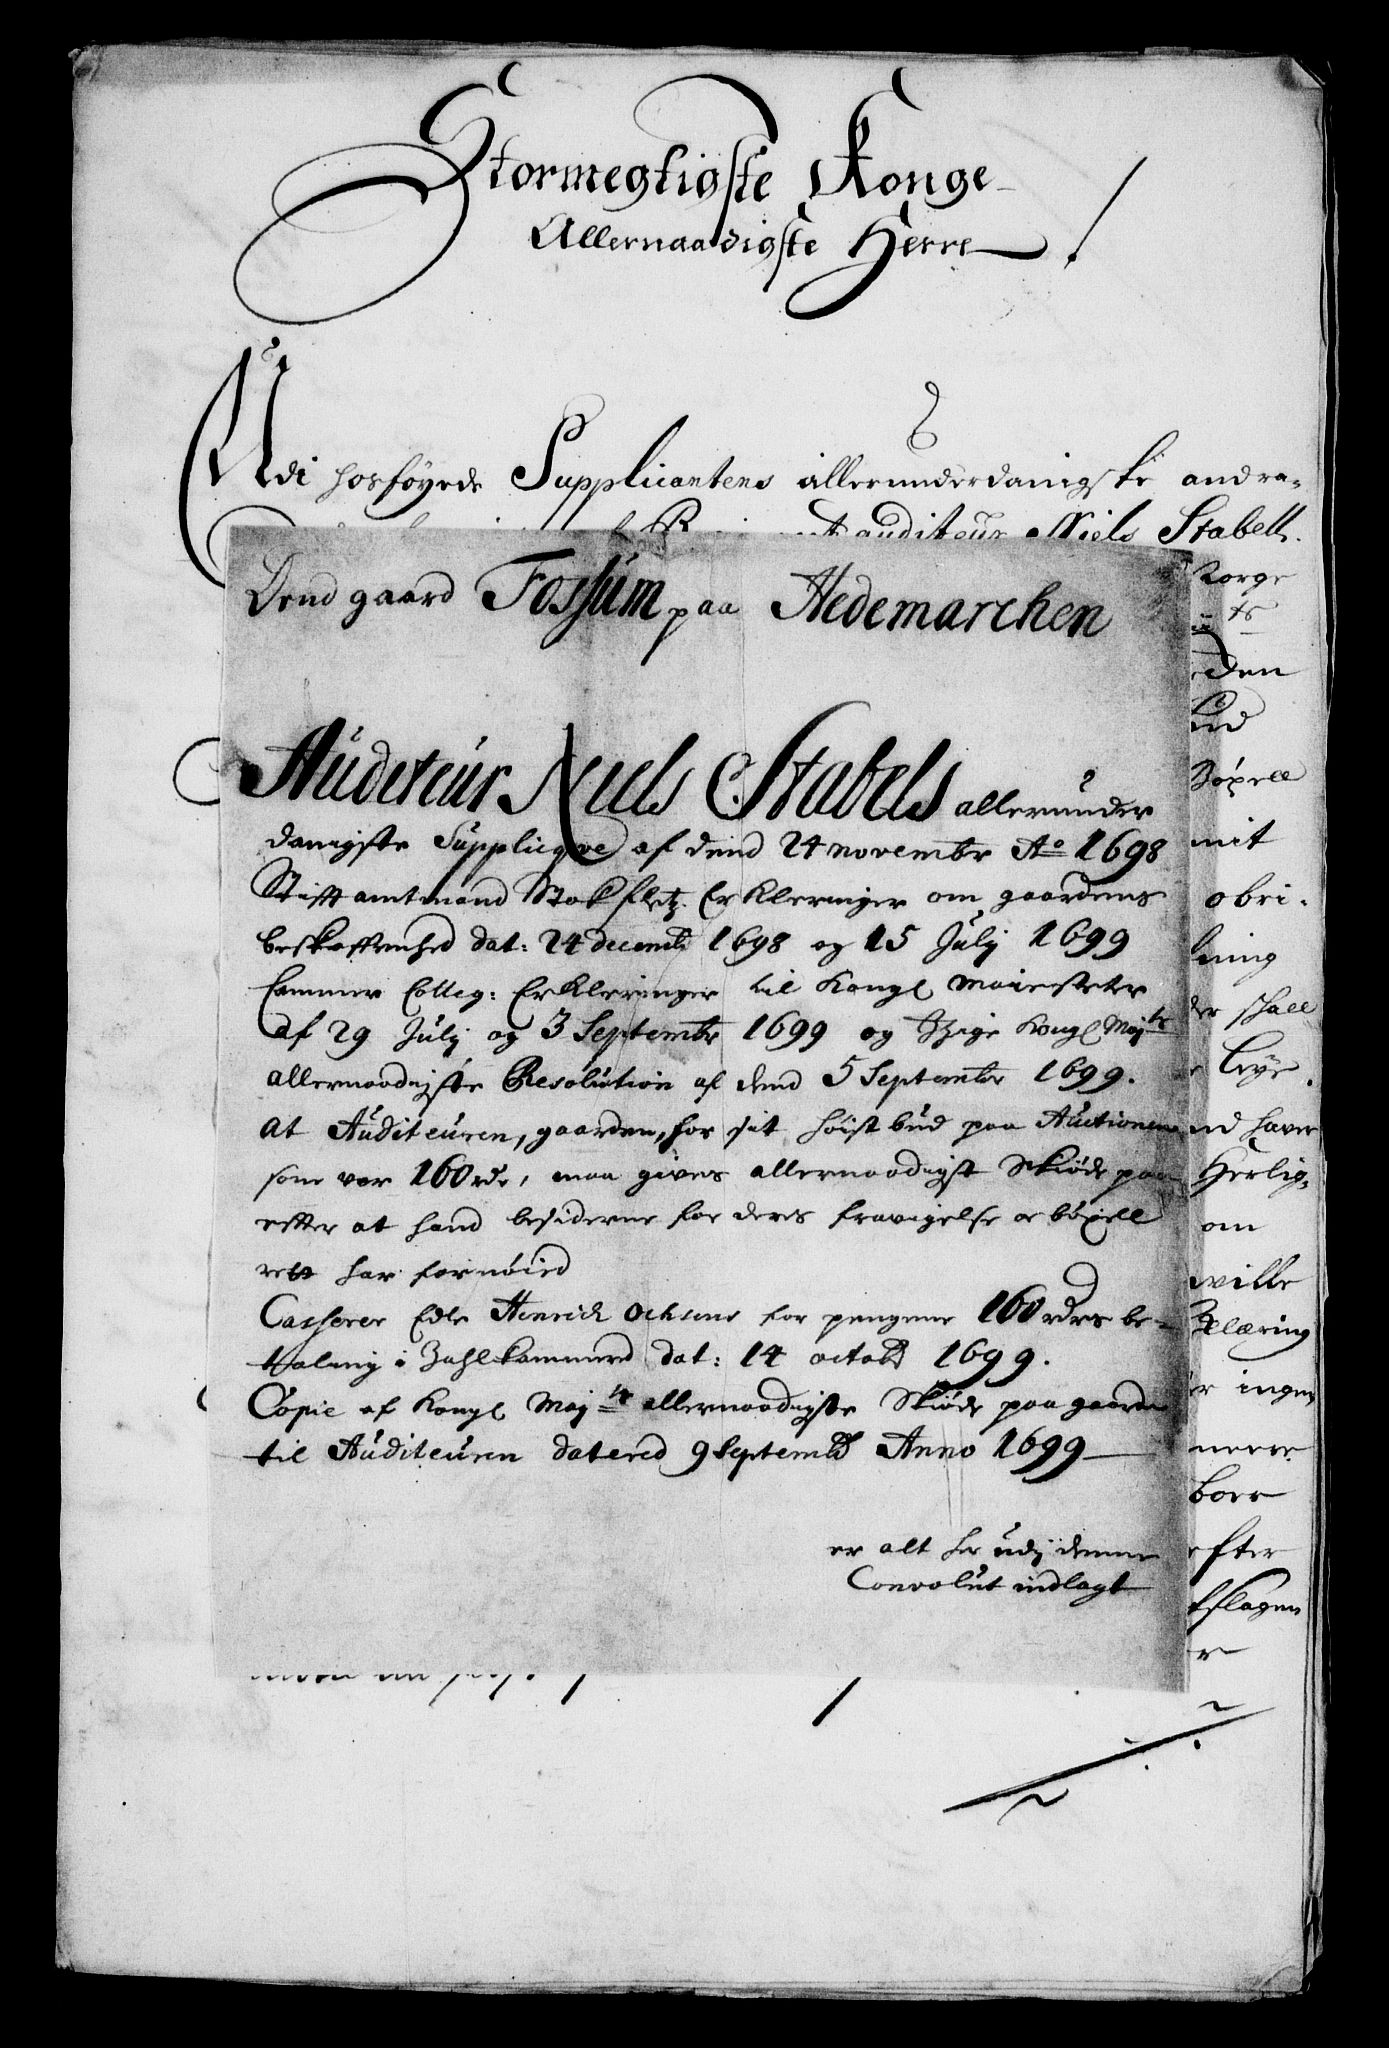 Stormegtigste Konge
Allernaadigste Herre!
Udi hosføyede Supplicantens allerunderdanigste andra-
auditeur Niels Stabell.
Dend gaard Fossum paa Hedemarchen
Auditeur Niels Stabels allerunder
danigste Supplicqve af dend 24 novembr Ao 1698
Stifft amtmand Stokfletz Erkleringer om gaardens
beskaffenhed dat: 24 decemb 1698 og 15 July 1699
Cammer Colleg: Erkleringer til Kongl Maiesteter
af 29 July og 3 Septembr 1699 og Kongl Maj:ts
allernaadigste Resolution af dend 5 Septembr 1699.
at Auditeuren, gaarden, for sit høist bud paa Auctionen
som var 160 rdr, maa gives allernaadigst Skiøde paa
efter at hand besiderne for deres fravigelse og böxell
rett har fornöied
Casserer Edle Henrich Ochsens for pengene 160 rdrs be-
taling i Zahlkammered dat: 14 octobr 1699.
Copie af Kongl Maj:ts allernaadigste Skiöde paa gaarden
til Auditeuren datered 9 Septembr Anno 1699
er alt her udj denne
Convolut indlagt
Norge
ts
den
ud
Böxell
mit
obri-
ning
der schall
Leye.
nd haver
Herlig-
om
ville
Klæring
er ingen
nerre
boer
efter
slagen
r